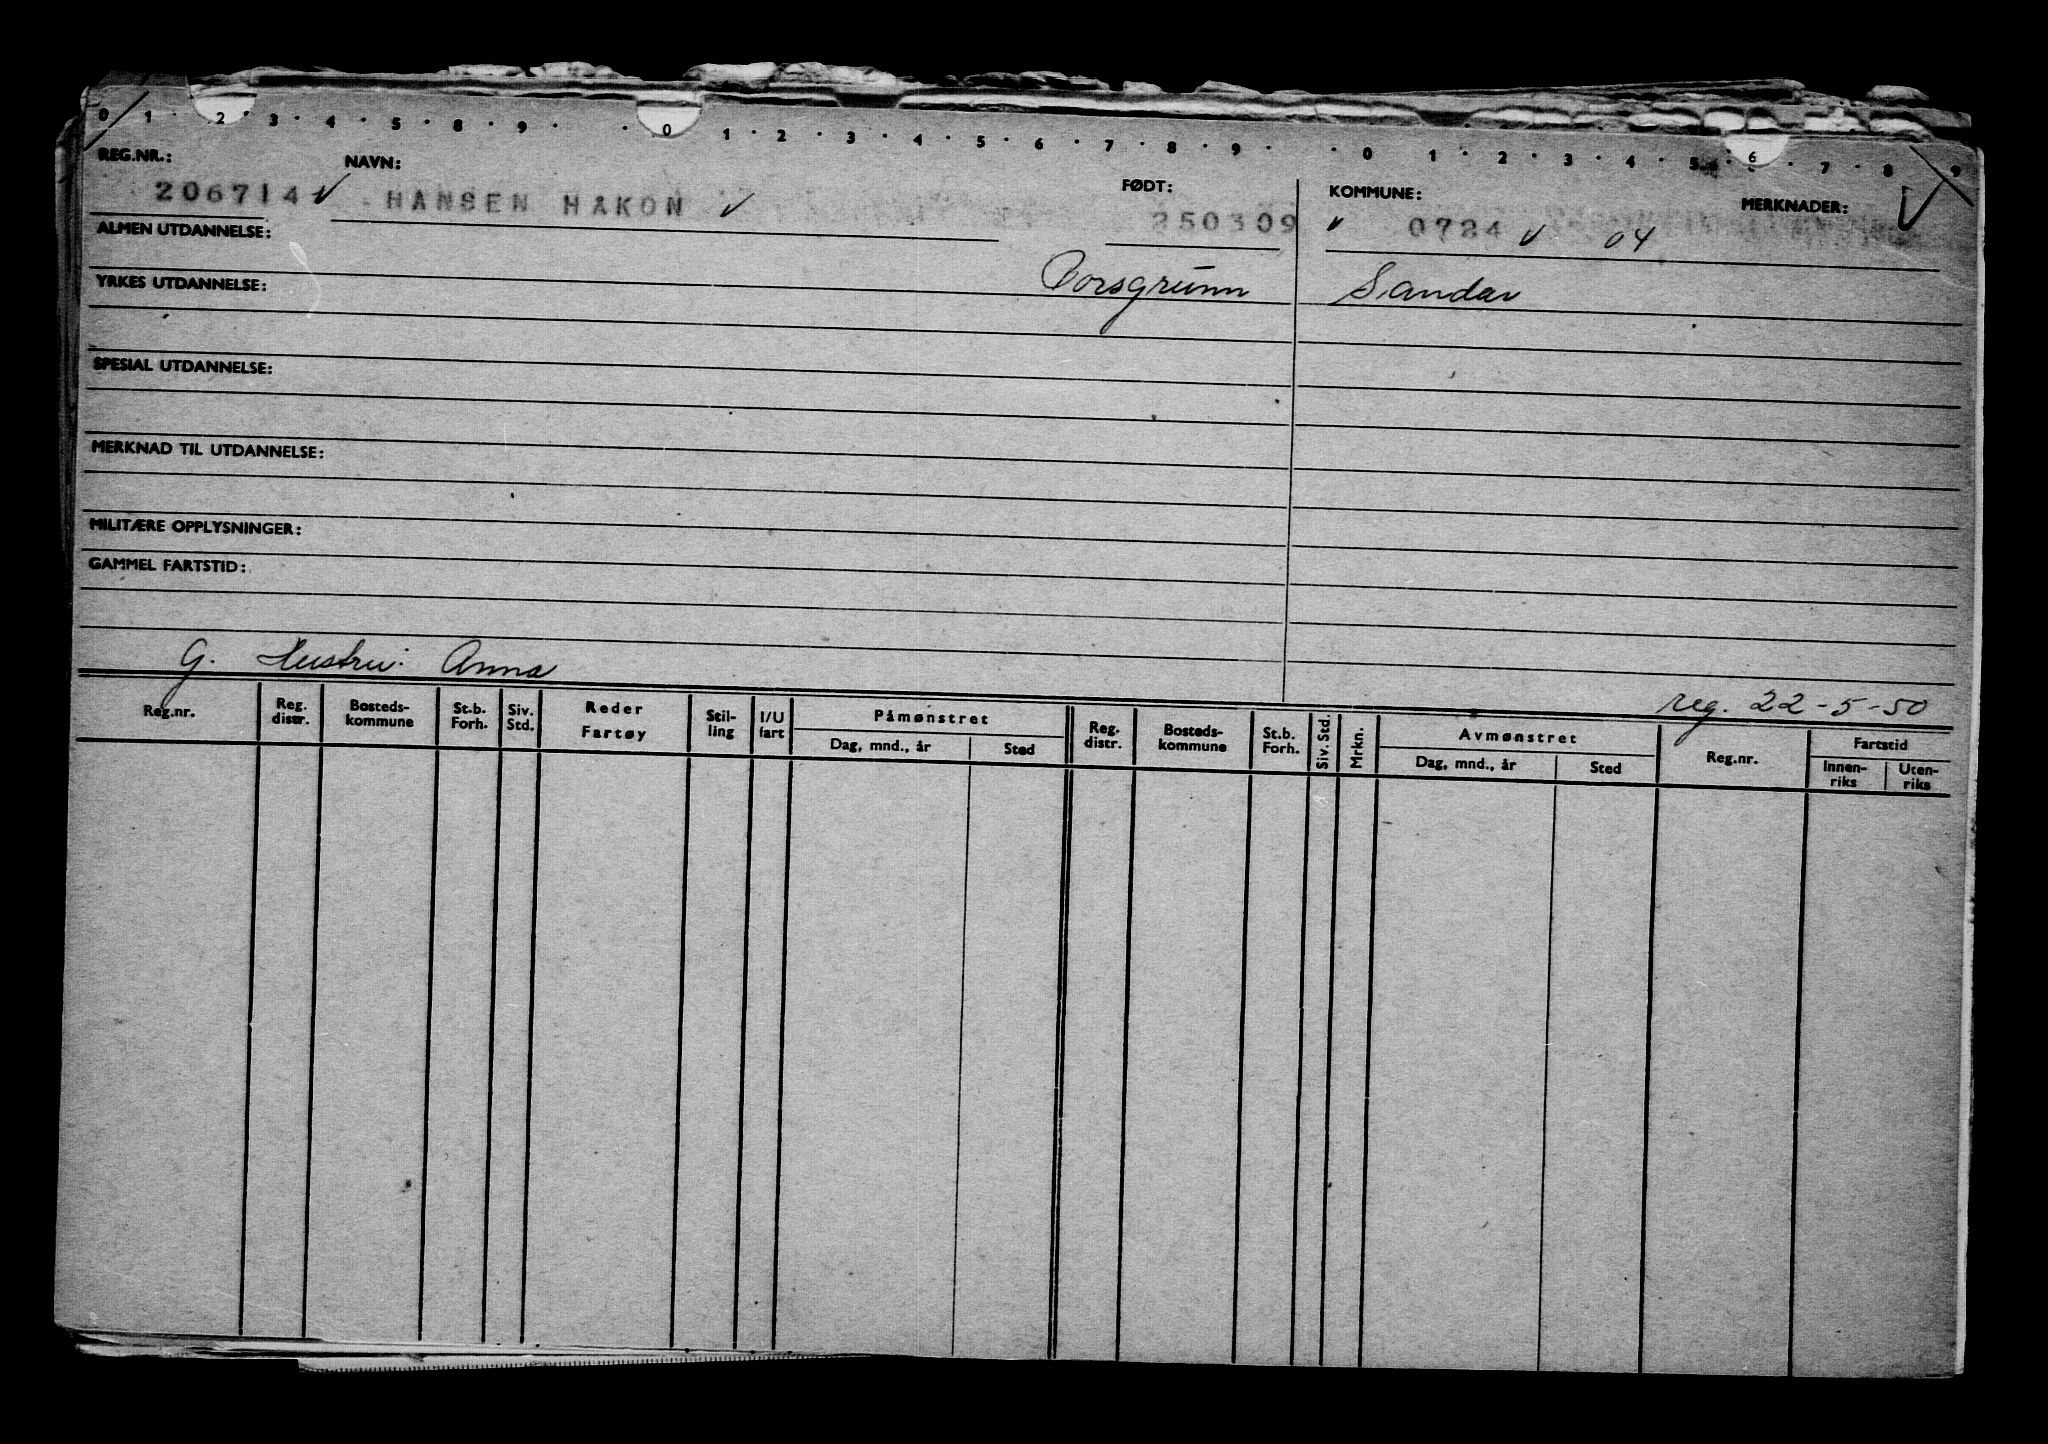 0 1 · 2 · 3 · 4 · 5 · 8 · 9 · · 0 1 · 2 · 3 · 4 · 5 · 6 · 7 · 8 · 9 · · 0 1 · 2 · 3 · 4 · 5 · 6 · 7 · 8 · 9
REG.NR.: NAVN: FØDT: KOMMUNE: MERKNADER:
206714 ✓ HANSEN HAKON ✓ 250309 ✓ 0724 ✓ 04 ✓
ALMEN UTDANNELSE:
Porsgrunn Sandar
YRKES UTDANNELSE:
SPESIAL UTDANNELSE:
MERKNAD TIL UTDANNELSE:
MILITÆRE OPPLYSNINGER:
GAMMEL FARTSTID:
G. Hustru: Anna
reg. 22-5-50
Reg.nr. Reg. distr. Bosteds-kommune St.b. Forh. Siv. Std. Reder Fartøy Stil-ling I/U fart Påmønstret Dag, mnd., år Sted Reg. distr. Bosteds-kommune St.b. Forh. Siv. Std. Mrkn. Avmønstret Dag, mnd., år Sted Reg.nr. Fartstid Innen-riks Uten-riks